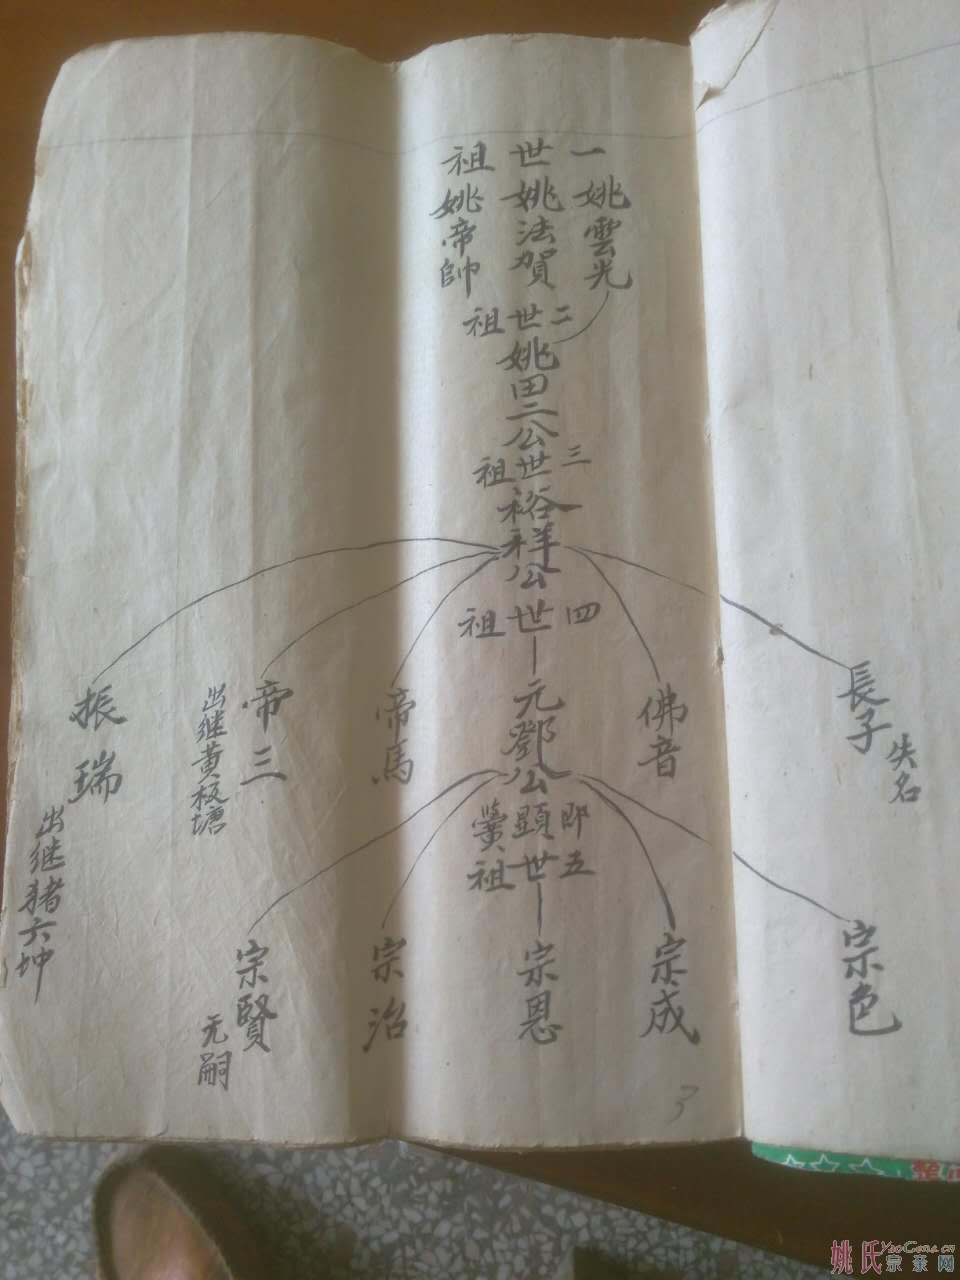 一世祖
姚雲光
姚法賀
姚帝帥
二世祖
姚田二公
三世祖
裕祥公
四世祖
長子
失名
佛音
元鄧公
即顯
帝馬
帝三
出继黄板塘
振瑞
出继猪六坤
五世祖
宗色
宗成
宗恩
宗治
宗賢
无嗣
3
整
姚氏宗亲网
YaoGens.cn